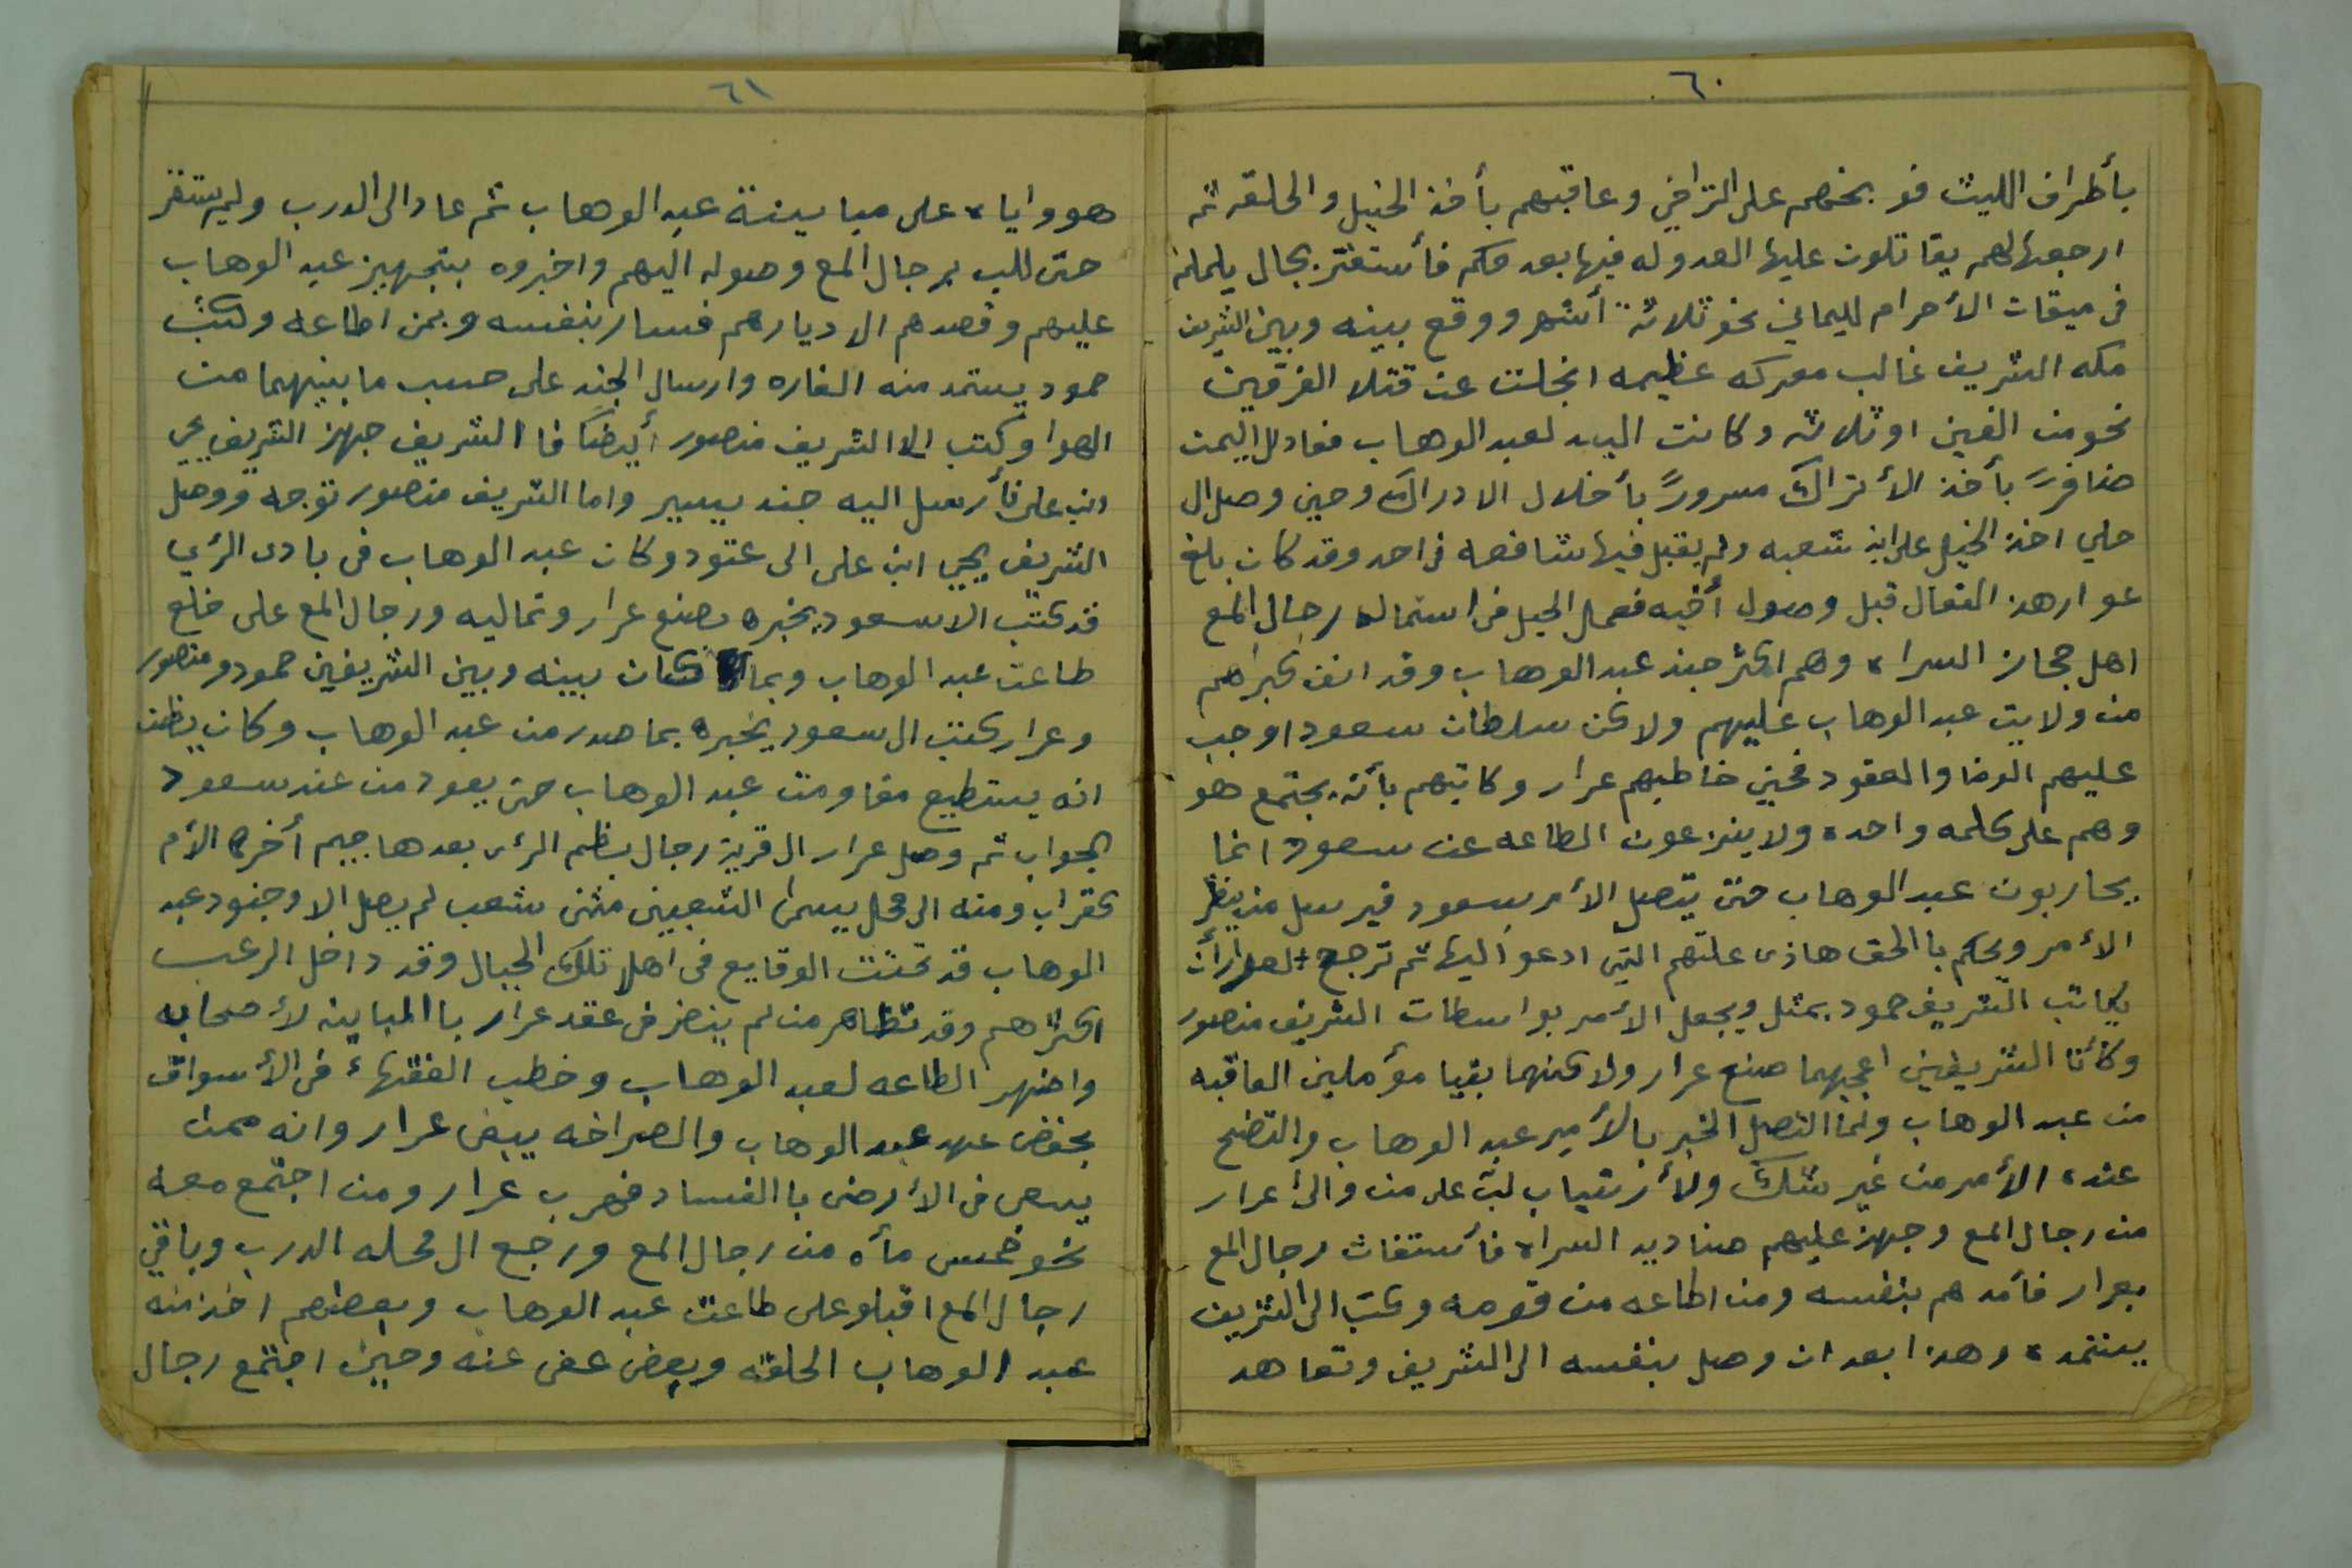 ٦٠
بأطراف الليث فوبخهم على التراخي وعاقبهم بأخذ الخيل والحلقه ثم
ارجعها لهم يقاتلون عليها العدو له فيها بعد مكم فأستقر بحال يلملم
في ميقات الأحرام لليماني نحو ثلاثة أشهر ووقع بينه وبين الشريف
مكه الشريف غالب معركه عظيمه انجلت عن قتلا الفرقين
نحو من الفين او ثلاثه وكانت اليد لعبد الوهاب فعاد لليمن
ضافرً بأخذ الأتراك مسرورً بأخلال الادراك وحين وصل ال
حلي اخذ الخيل على ابن شعبه ولم يقبل فيها شافعه في احد وقد كان بلغ
عرار هذ الفعال قبل وصول أخيه فعمل الحيل في استماله رجال المع
اهل حجاز السراه وهم اكثر جند عبد الوهاب وقد انف كبراهم
من ولايت عبد الوهاب عليهم ولاكن سلطان سعود اوجب
عليهم الوفا والعقود فحين خاطبهم عرار وكاتبهم بأنه يجتمع هو
وهم على كلمه واحده ولا ينزعون الطاعه عن سعود انما
يحاربون عبد الوهاب حتى يتصل الأمر بسعود فيرسل من ينظر
الأمر ويحكم باالحق هاذى علتهم التي ادعو اليها ثم ترجح لعرار أن
يكاتب الشريف حمود بمثل ويجعل الأمر بواسطات الشريف منصور
وكأنا الشريفين اعجبهما صنع عرار ولاكنهما بقيا مؤملين العاقبه
من عبد الوهاب ولما اتصل الخبر بالأمير عبد الوهاب والتضح
عنده الأمر من غير شك ولأرتياب لب على من والئ عرار
من رجال المع وجهز عليهم صناديد السراه فأستغاث رجال المع
بعرار فأمدهم بنفسه ومن اطاعه من قومه وكتب الى الشريف
يستمده وهذا بعد ان وصل بنفسه الى الشريف وتعاهد
٦١
هو واياه على مباينة عبد الوهاب ثم عاد الى الدرب ولم يستقر
حتى للب برجال المع وصوله اليهم واخبروه بتجهيز عبد الوهاب
عليهم وقصدهم الا ديارهم فسار بنفسه وبمن اطاعه وكتب
حمود يستمد منه الغاره وارسال الجند على حسب ما بينهما من
الهوا وكتب الا الشريف منصور أيضًا فا الشريف جهز الشريف يحي
ابن على فأرسل اليه جند يسير واما الشريف منصور توجه ووصل
الشريف يحيي ابن على الى عتود وكان عبد الوهاب في بادى الرئي
قد كتب الا سعود يخبره بصنع عرار وتماليه ورجال المع على خلع
طاعت عبد الوهاب وبما كان بينه وبين الشريفين حمود ومنصور
وعرار كتب ال سعود يخبره بما صدر من عبد الوهاب وكان يظن
انه يستطيع مقاومت عبد الوهاب حتى يعود من عند سعود
الجواب ثم وصل عرار ال قرية رجال بظم الرئ بعدها جيم أخره الأم
كقراب ومنه الى محل يسمئ الشعبين مثنى شعب لم يصل الا وجنود عبد
الوهاب قد تمت الوقايع في اهل تلك الجبال وقد داخل الرعب
اكثرهم وقد تظاهر من لم ينضر في عقد عرار باالمباينه لأصحابه
واضهر الطاعه لعبد الوهاب وخطب الفقهاء في الأسواق
بحفض عهد عبد الوهاب والصراخه يبغى عرار وانه ممن
يسعى في الأرض باالفساد فهرب عرار ومن اجتمع معه
نحو خمس مأه من رجال المع ورجع ال محله الدرب وباقي
رجال المع اقبلو على طاعت عبد الوهاب وبعضهم اخذ منه
عبد الوهاب الحلقه وبعض عفى عنه وحين اجتمع رجال